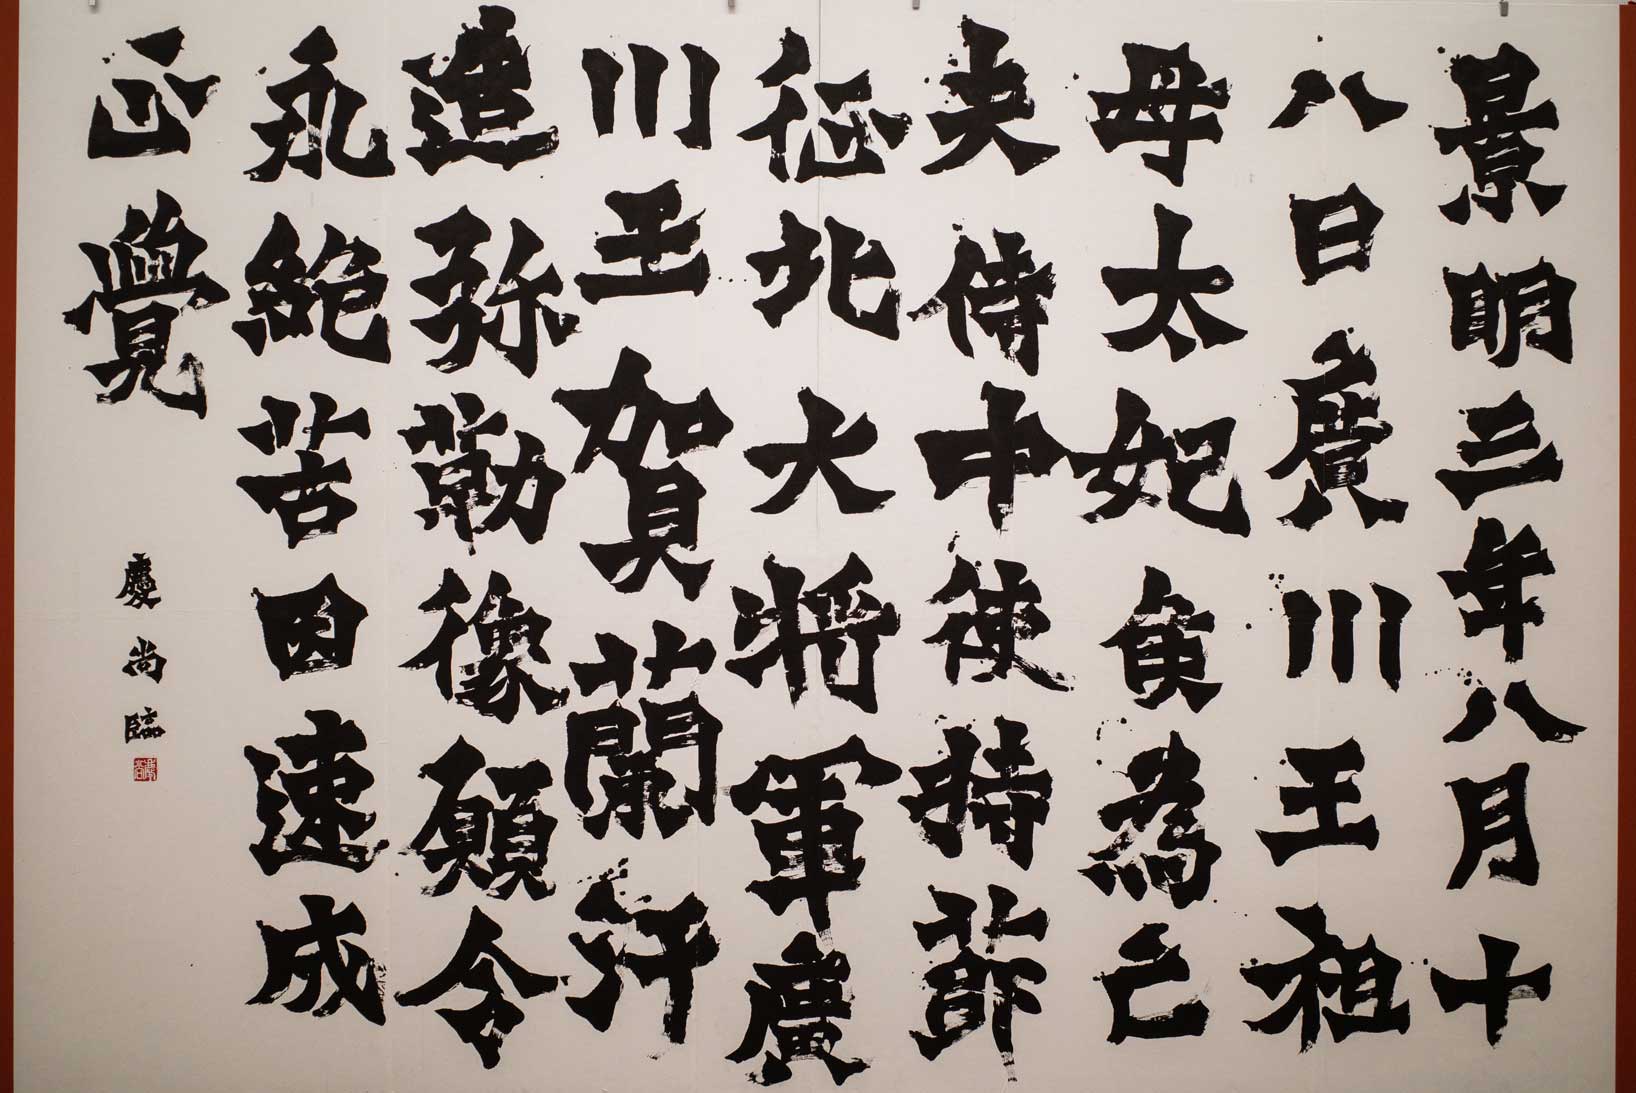 景明三年八月十
八日廣川王祖
母太妃矦為亡
夫侍中使持節
征北大將軍廣
川王賀蘭汗
造弥勒像願令
永絕苦因速成
正覺
慶尚臨